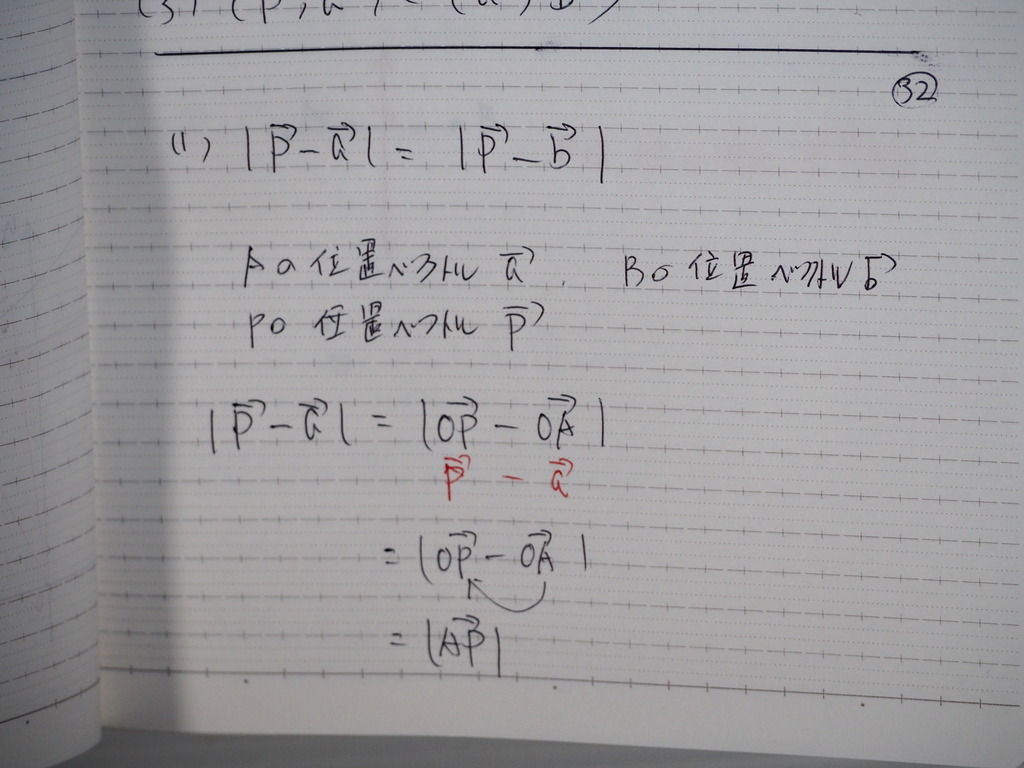 ㉜
(1) |p⃗ - a⃗| = |p⃗ - b⃗|
Aの位置ベクトル a⃗. Bの位置ベクトル b⃗
Pの位置ベクトル p⃗
|p⃗ - a⃗| = |OP⃗ - OA⃗|
p⃗ - a⃗
= |OP⃗ - OA⃗|
= |AP⃗|